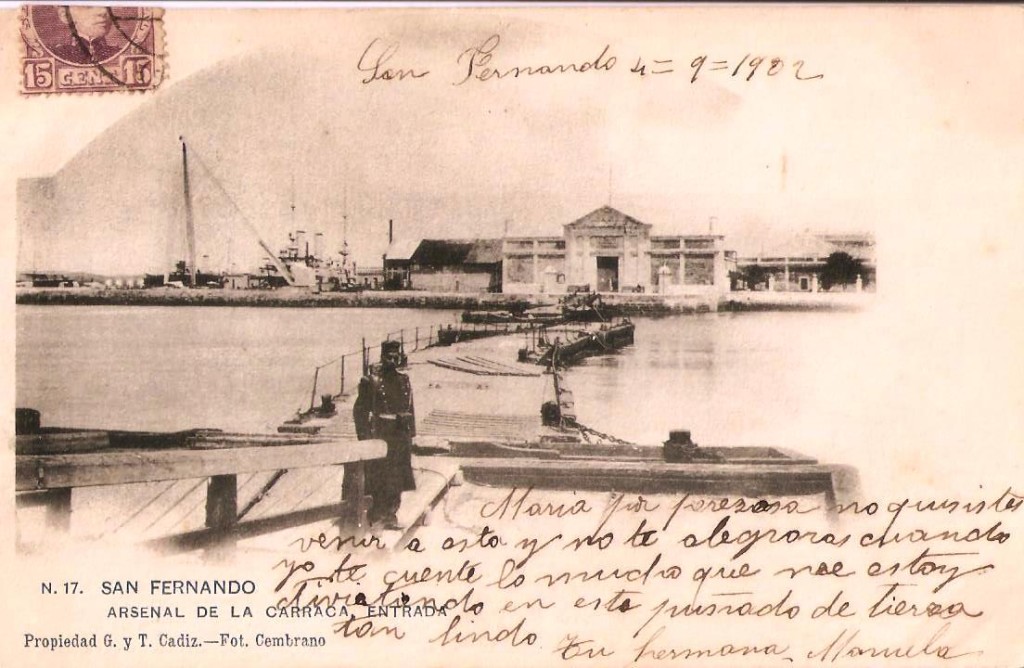 15 CENT.S 15
San Fernando 4=9=1902
Maria por perezosa no quisistes
venir a esta y no te alegraras cuando
yo te cuente lo mucho que me estoy
divirtiendo en este puñado de tierra
tan lindo
Tu hermana, Manuela
N. 17. SAN FERNANDO
ARSENAL DE LA CARRACA, ENTRADA
Propiedad G. y T. Cadiz.—Fot. Cembrano